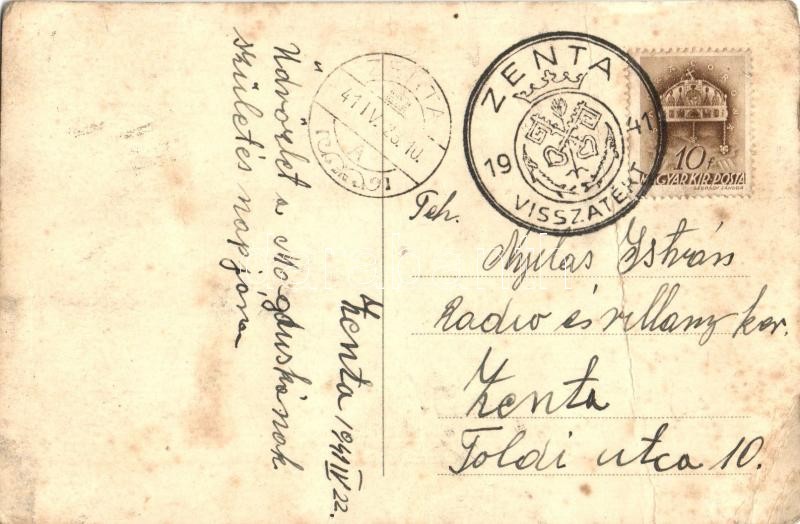 Üdvözlet a Magduskának
születés napjára
Zenta 1941 IV 22.
ZENTA
41 IV. 28. 10.
A
ZENTA
19 41
VISSZATÉRT
10 f
MAGYAR KIR. POSTA
Teh.
Nyilas István
Radio és villany ker.
Zenta
Toldi utca 10.